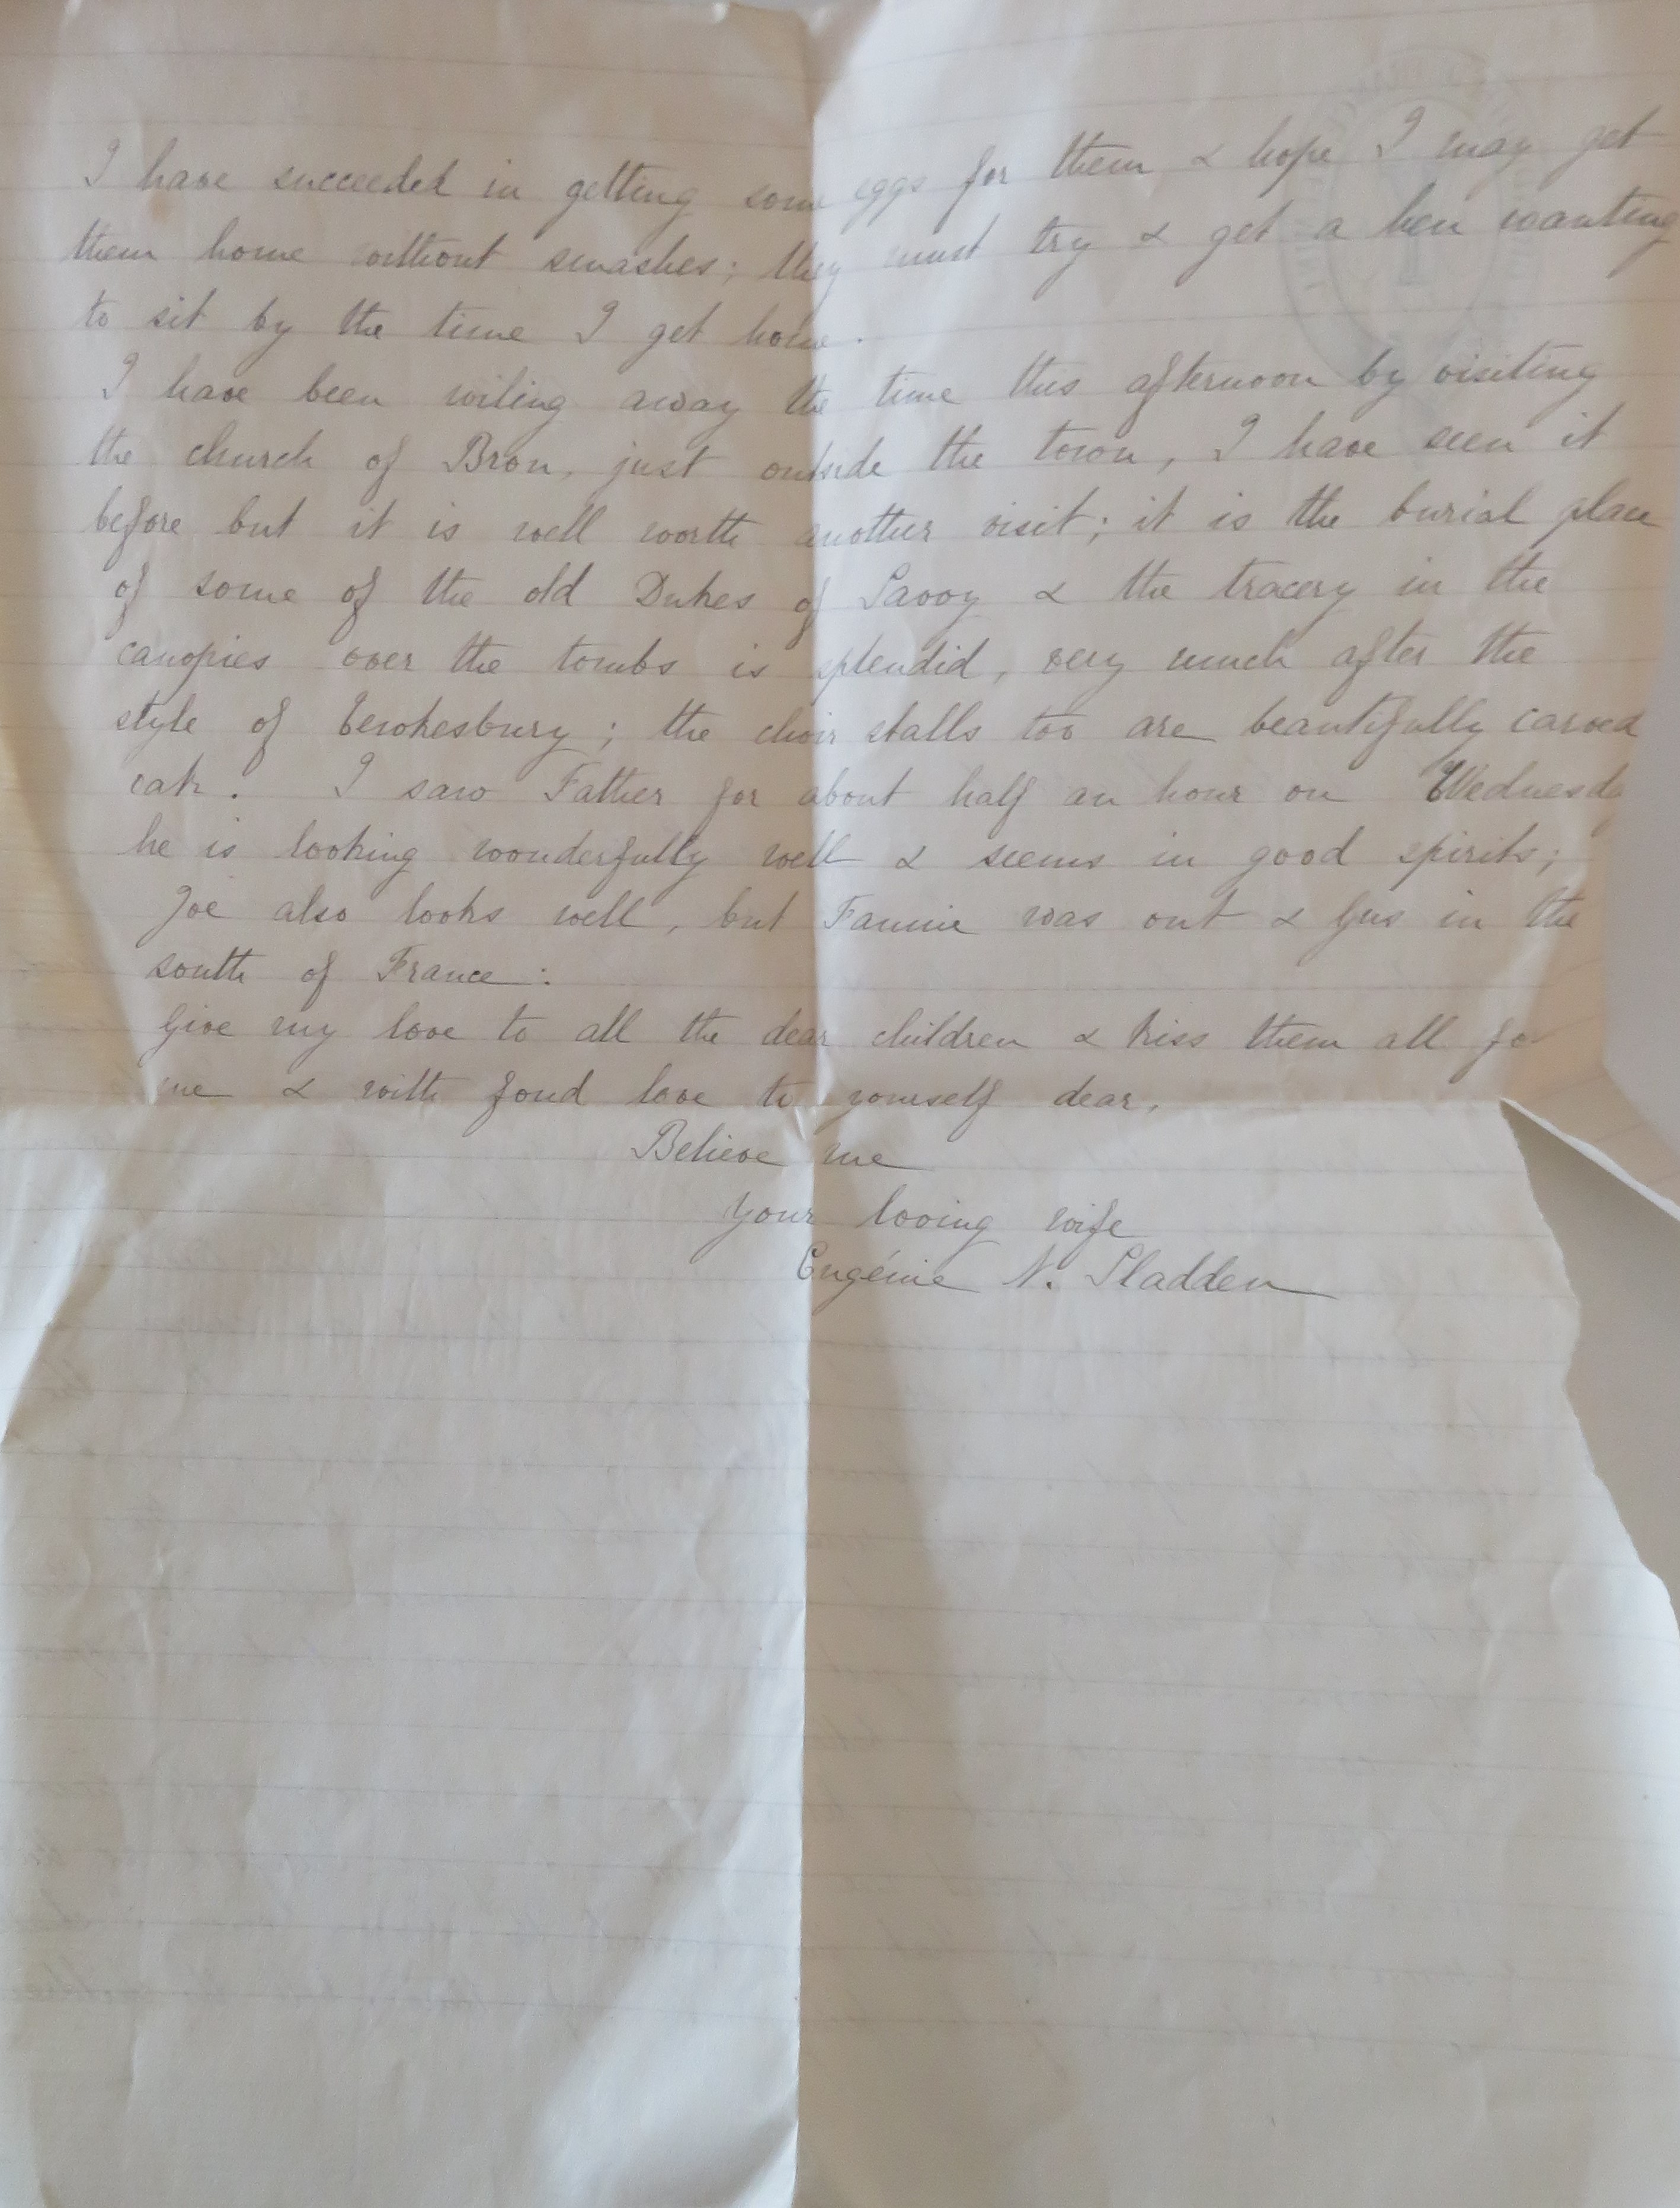 I have succeeded in getting some eggs for them & hope I may get
them home without smashes; they must try & get a hen wanting
to sit by the time I get home.
I have been wiling away the time this afternoon by visiting
the church of Bron, just outside the town, I have seen it
before but it is well worth another visit; it is the burial place
of some of the old Dukes of Savoy & the tracery in the
canopies over the tombs is splendid, very much after the
style of Tewkesbury; the choir stalls too are beautifully carved
oak. I saw Father for about half an hour on Wednesda
he is looking wonderfully well & seems in good spirits;
Joe also looks well, but Fannie was out & Gus in the
south of France:
Give my love to all the dear children & kiss them all for
me & with fond love to yourself dear,
Believe me
your loving wife
Eugénie N. Sladden